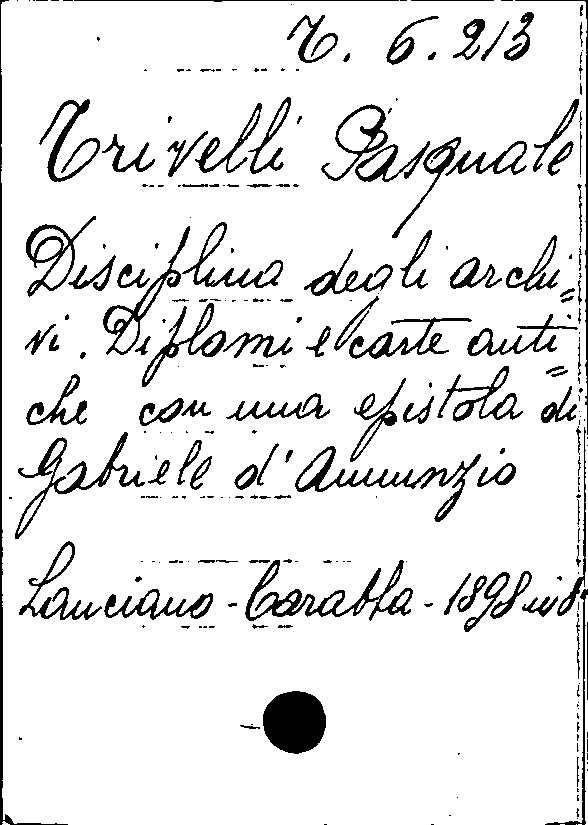 T. 6. 213
Trivelli Pasquale
Disciplina degli archi=
vi. Diplomi e carte anti=
che con una epistola di
Gabriele d'Annunzio
Lanciano - Carabba - 1898 in 8°